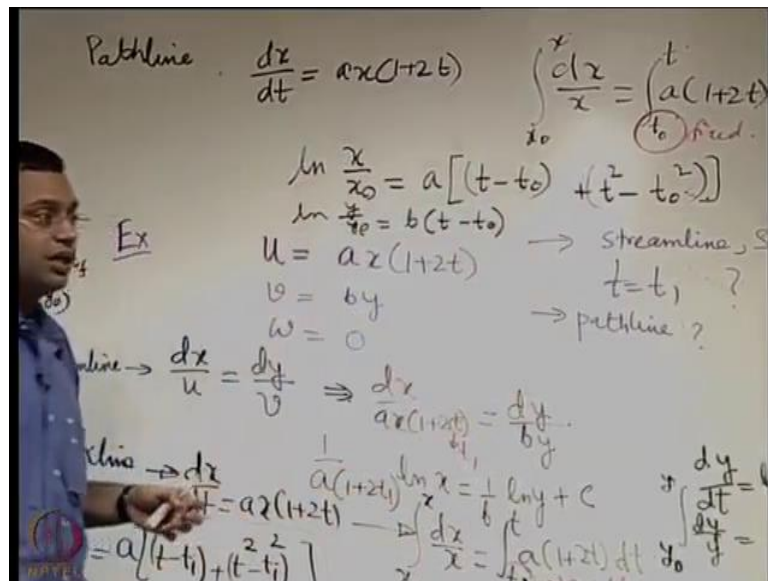 Pathline . dx/dt = ax(1+2t) ∫_{x0}^{x} dx/x = ∫_{t0}^{t} a(1+2t)
fixed.
ln x/x0 = a[(t-t0) + (t²-t0²)]
ln y/y0 = b(t-t0)
Ex u = ax(1+2t) → streamline, S
v = by t = t1 ?
w = 0 → pathline ?
mline → dx/u = dy/v ⇒ dx/ax(1+2t) = dy/by .
t1
1/a(1+2t1) ln x = 1/b lny + C
kline → dx/dt = ax(1+2t) → ∫ dx/x = ∫^{t} a(1+2t) dt
dy/dt =
∫_{y0}^{y} dy/y =
= a[(t-ti)+(t²-ti²)]
NPTEL